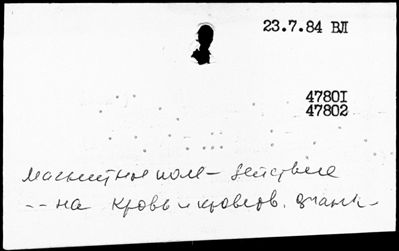 23.7.84 ВЛ
47801
47802
магнитное поле – действие
-- на кровь и кровотв.